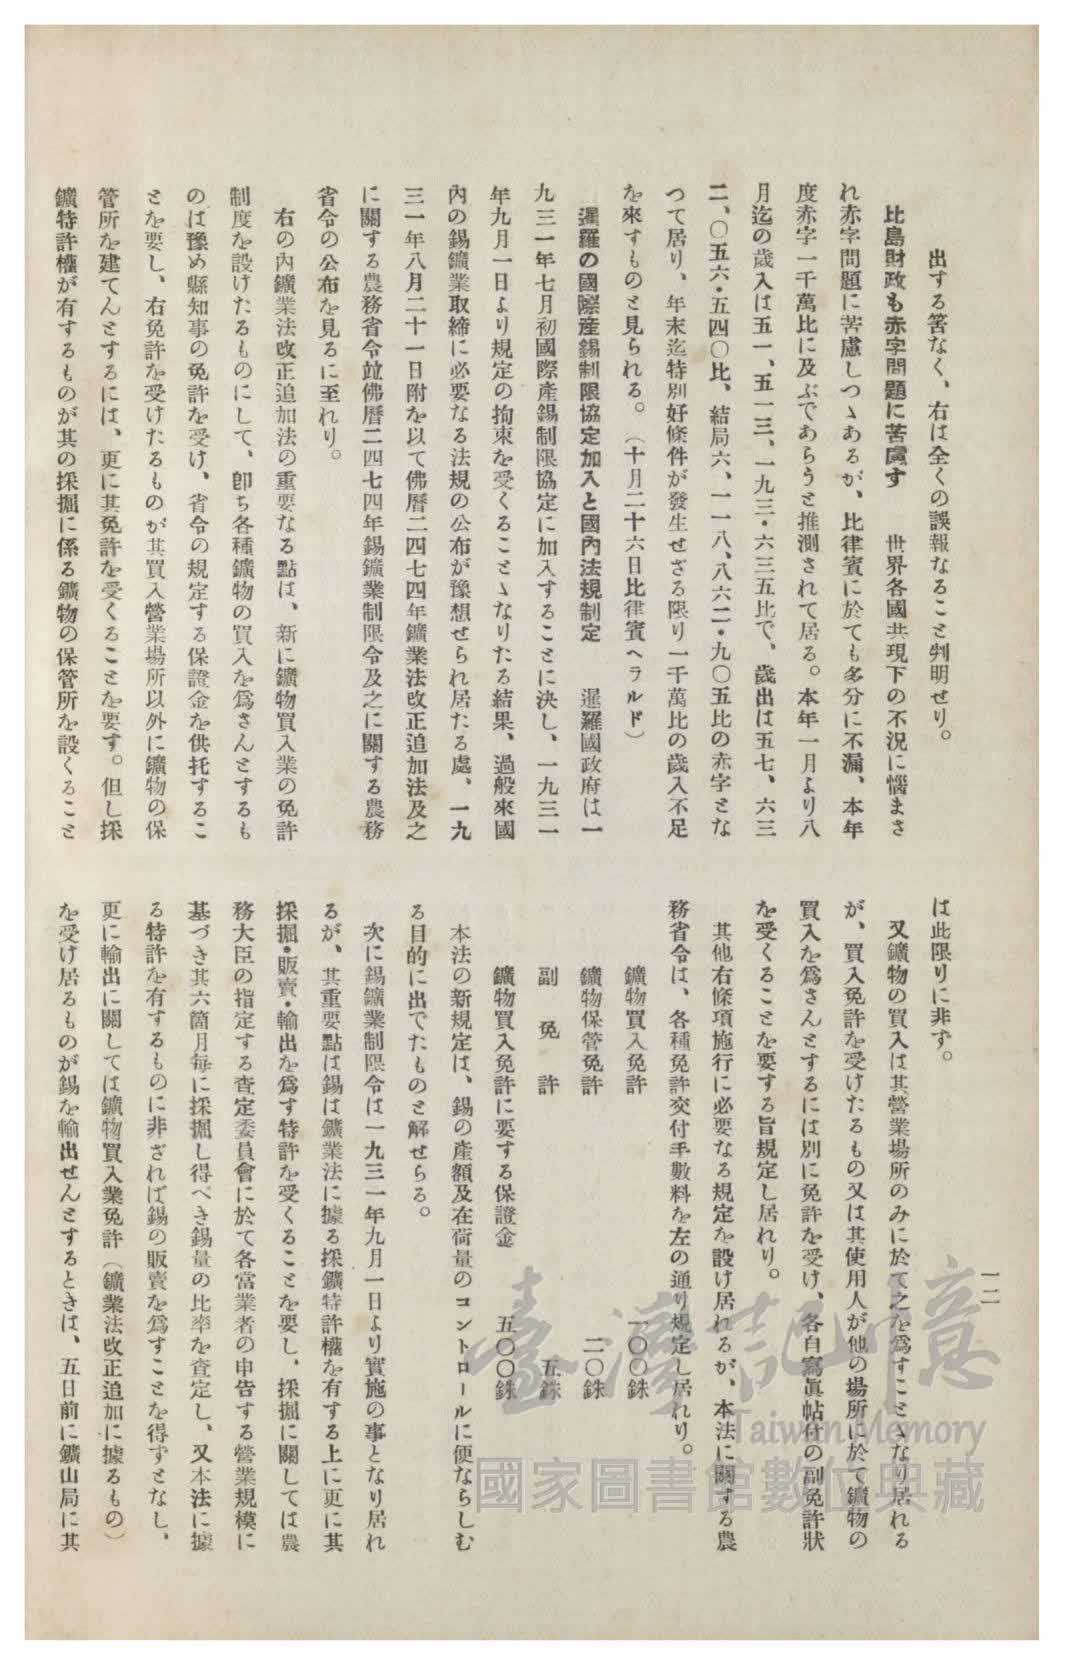 出する筈なく、右は全くの誤報なること判明せり。
比島財政も赤字問題に苦慮す　世界各國共現下の不況に惱まさ
れ赤字問題に苦慮しつゝあるが、比律賓に於ても多分に不漏、本年
度赤字一千萬比に及ぶであらうと推測されて居る。本年一月より八
月迄の歲入は五一、五一三、一九三・六三五比で、歲出は五七、六三
二、〇五六・五四〇比、結局六、一一八、八六二・九〇五比の赤字とな
つて居り、年末迄特別好條件が發生せざる限り一千萬比の歲入不足
を來すものと見られる。（十月二十六日比律賓ヘラルド）
暹羅の國際產錫制限協定加入と國內法規制定　暹羅國政府は一
九三一年七月初國際產錫制限協定に加入することに決し、一九三一
年九月一日より規定の拘束を受くることゝなりたる結果、過般來國
內の錫鑛業取締に必要なる法規の公布が豫想せられ居たる處、一九
三一年八月二十一日附を以て佛曆二四七四年鑛業法改正追加法及之
に關する農務省令竝佛曆二四七四年錫鑛業制限令及之に關する農務
省令の公布を見るに至れり。
右の內鑛業法改正追加法の重要なる點は、新に鑛物買入業の免許
制度を設けたるものにして、卽ち各種鑛物の買入を爲さんとするも
のは豫め縣知事の免許を受け、省令の規定する保證金を供托するこ
とを要し、右免許を受けたるものが其買入營業場所以外に鑛物の保
管所を建てんとするには、更に其免許を受くることを要す。但し採
鑛特許權が有するものが其の採掘に係る鑛物の保管所を設くること
は此限りに非ず。
又鑛物の買入は其營業場所のみに於て之を爲すことゝなり居れる
が、買入免許を受けたるもの又は其使用人が他の場所に於て鑛物の
買入を爲さんとするには別に免許を受け、各自寫眞帖付の副免許狀
を受くることを要する旨規定し居れり。
其他右條項施行に必要なる規定を設け居れるが、本法に關する農
務省令は、各種免許交付手數料を左の通り規定し居れり。
鑛物買入免許　一〇〇銖
鑛物保管免許　二〇銖
副免許　五銖
鑛物買入免許に要する保證金　五〇〇銖
本法の新規定は、錫の產額及在荷量のコントロールに便ならしむ
る目的に出でたものと解せらる。
次に錫鑛業制限令は一九三一年九月一日より實施の事となり居れ
るが、其重要點は錫は鑛業法に據る採鑛特許權を有する上に更に其
採掘・販賣・輸出を爲す特許を受くることを要し、採掘に關しては農
務大臣の指定する査定委員會に於て各當業者の申告する營業規模に
基づき其六箇月每に採掘し得べき錫量の比率を査定し、又本法に據
る特許を有するものに非ざれば錫の販賣を爲すことを得ずとなし、
更に輸出に關しては鑛物買入業免許（鑛業法改正追加に據るもの）
を受け居るものが錫を輸出せんとするときは、五日前に鑛山局に其
一二
臺灣記憶
Taiwan Memory
國家圖書館數位典藏